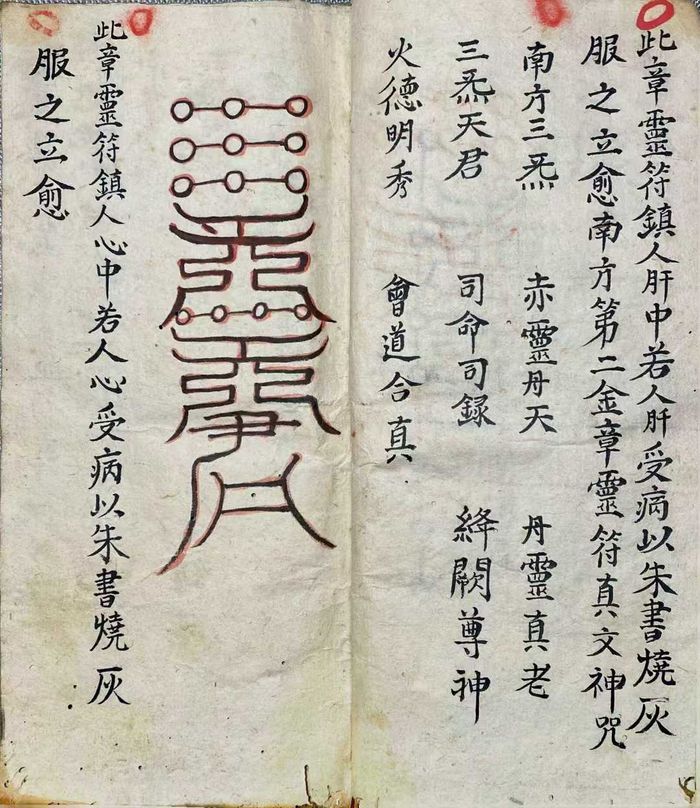 此章靈符鎮人肝中若人肝受病以朱書燒灰
服之立愈南方第二金章靈符真文神咒
南方三炁 赤靈丹天 丹靈真老
三炁天君 司命司録 絳闕尊神
火德明秀 會道合真
此章靈符鎮人心中若人心受病以朱書燒灰
服之立愈